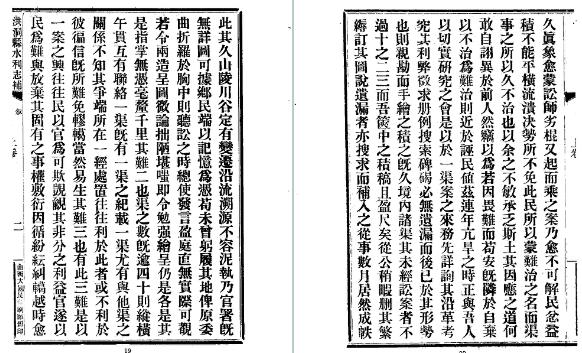 此其久山陵川谷定有變遷沿流溯源不容泥執乃官署旣
無詳圖可據鄉民端以記憶爲憑苟未曾躬履其地俾原委
曲折羅於胸中則聽訟之時總使發言盈庭直無實際可觀
若令兩造呈圖徵論拙陋堪嗤卽令勉强繪呈仍是各是其
是指掌無憑毫釐千里其難二也渠之數旣逾四十則縱橫
午貫互有聯絡一渠旣有一渠之紀載一渠尤有與他渠之
關係不知其爭端所在一經處置往往利於此者或不利於
彼徧信旣所難免轇轕當然易生其難三也有此三難是以
一案之興往往民以官爲可欺覬覦其非分之利益官遂以
民爲難與放棄其固有之事權敷衍因循紛紜糾轕越時愈
洪洞縣水利志補
二
19
久眞象愈蒙訟師劣棍又起而乘之案乃愈不可解民忿益
積不能平橫流潰決勢所不免此民所以蒙難治之名而渠
事之所以久不治也以余之不敏承乏斯土其因應之道何
敢自詡異於前人然竊以爲若因畏難而苟安旣隣於自棄
以不治爲難治則近於誣民値茲連年亢旱之時正與吾人
以切實研究之會是以於一渠案之來務先詳詢其沿革考
究其利弊徵求册例搜索碑碣必無遺漏而後已於其形勢
也則親勘而手繪之積之旣久境內諸渠其未經訟案者不
過十之二三而吾篋中之積稿且盈尺矣從公稍暇其繁
訂其圖說遺漏者亦搜求而補入之從事數月居然成帙